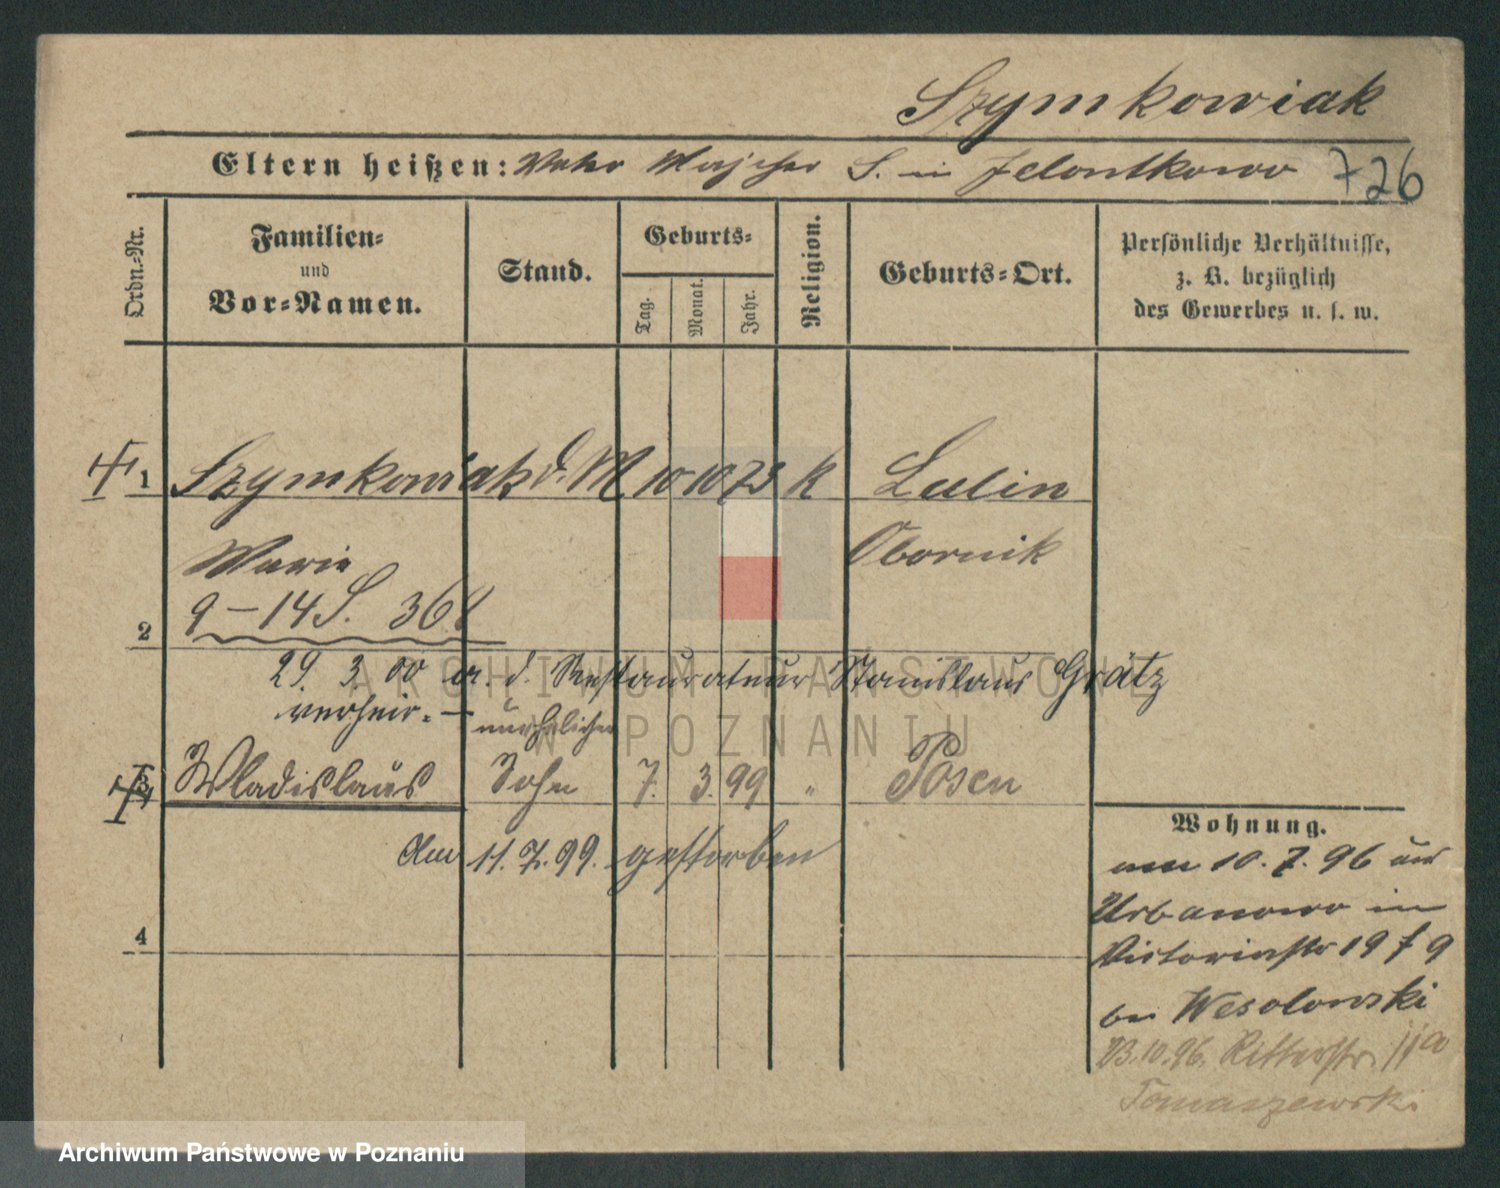 Szymkowiak
Eltern heißen: Vater Majcher S. in Zelontkowo 726
Ordn.-Nr.
Familien-
und
Vor-Namen.
Stand.
Geburts-
Tag.
Monat.
Jahr.
Religion.
Geburts-Ort.
Persönliche Verhältnisse,
z. B. bezüglich
des Gewerbes u. s. w.
1 Szymkowiak d. M 10 10 73 k Lulin
Marie Obornik
9-14 S. 368
2
29. 3. 00 a. d. Restaurateur Stanislaus Grätz
verheir. - unehelicher
3 Wladislaus Sohn 7. 3. 99 " Posen
Am 11. 7. 99. gestorben
4
Wohnung.
am 10. 7. 96 aus
Urbanowo in
Victoriastr 19 f 9
bei Wesolowski
23.10.96. Ritterstr. 11a
Tomaszewski
ARCHIWUM PAŃSTWOWE
W POZNANIU
Archiwum Państwowe w Poznaniu